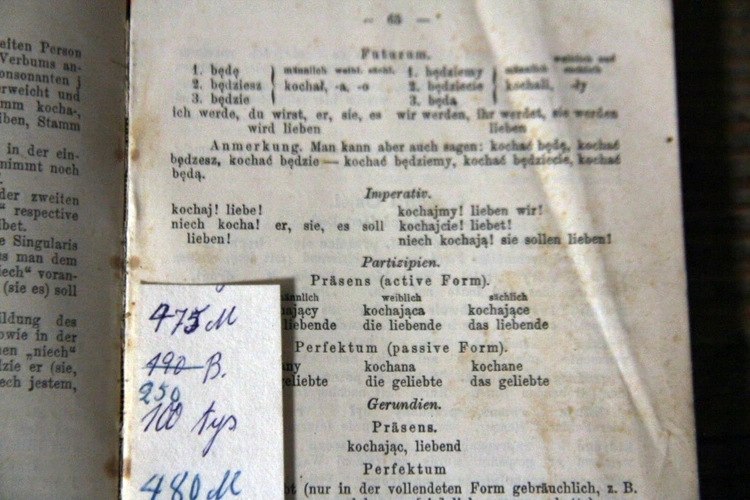 eiten Person
Verbums an-
onsonanten j
erweicht und
mm kocha-,
iben, Stamm
in der ein-
nimmt noch
der zweiten
" respective
lbet.
e Singularis
s man dem
iech" voran-
(sie es) soll
ildung des
owie in der
nen „niech"
dzie er (sie,
ech jestem,
— 65 —
Futurum.
männlich weibl. sächl. männlich weiblich und sächlich
1. będę 1. będziemy
2. będziesz kochał, -a, -o 2. będziecie kochali, -ły
3. będzie 3. będa
ich werde, du wirst, er, sie, es wir werden, ihr werdet, sie werden
wird lieben lieben
Anmerkung. Man kann aber auch sagen: kochać będę, kochać
będzesz, kochać będzie — kochać będziemy, kochać będziecie, kochać
będą.
Imperativ.
kochaj! liebe! kochajmy! lieben wir!
niech kocha! er, sie, es soll kochajcie! liebet!
lieben! niech kochają! sie sollen lieben!
Partizipien.
Präsens (active Form).
männlich weiblich sächlich
hający kochająca kochające
liebende die liebende das liebende
Perfektum (passive Form).
any kochana kochane
geliebte die geliebte das geliebte
Gerundien.
Präsens.
kochając, liebend
Perfektum
bt (nur in der vollendeten Form gebräuchlich, z. B.
475 M
190 B.
250
100 tys
480 M